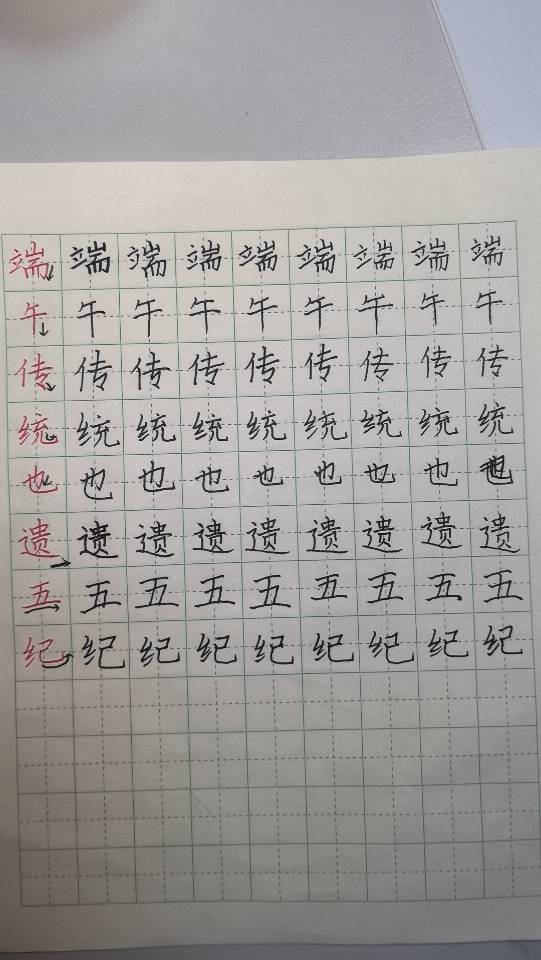 端端端端端端端端端
午午午午午午午午午
传传传传传传传传传
统统统统统统统统统
也也也也也也也也也
遗遗遗遗遗遗遗遗遗
五五五五五五五五五
纪纪纪纪纪纪纪纪纪